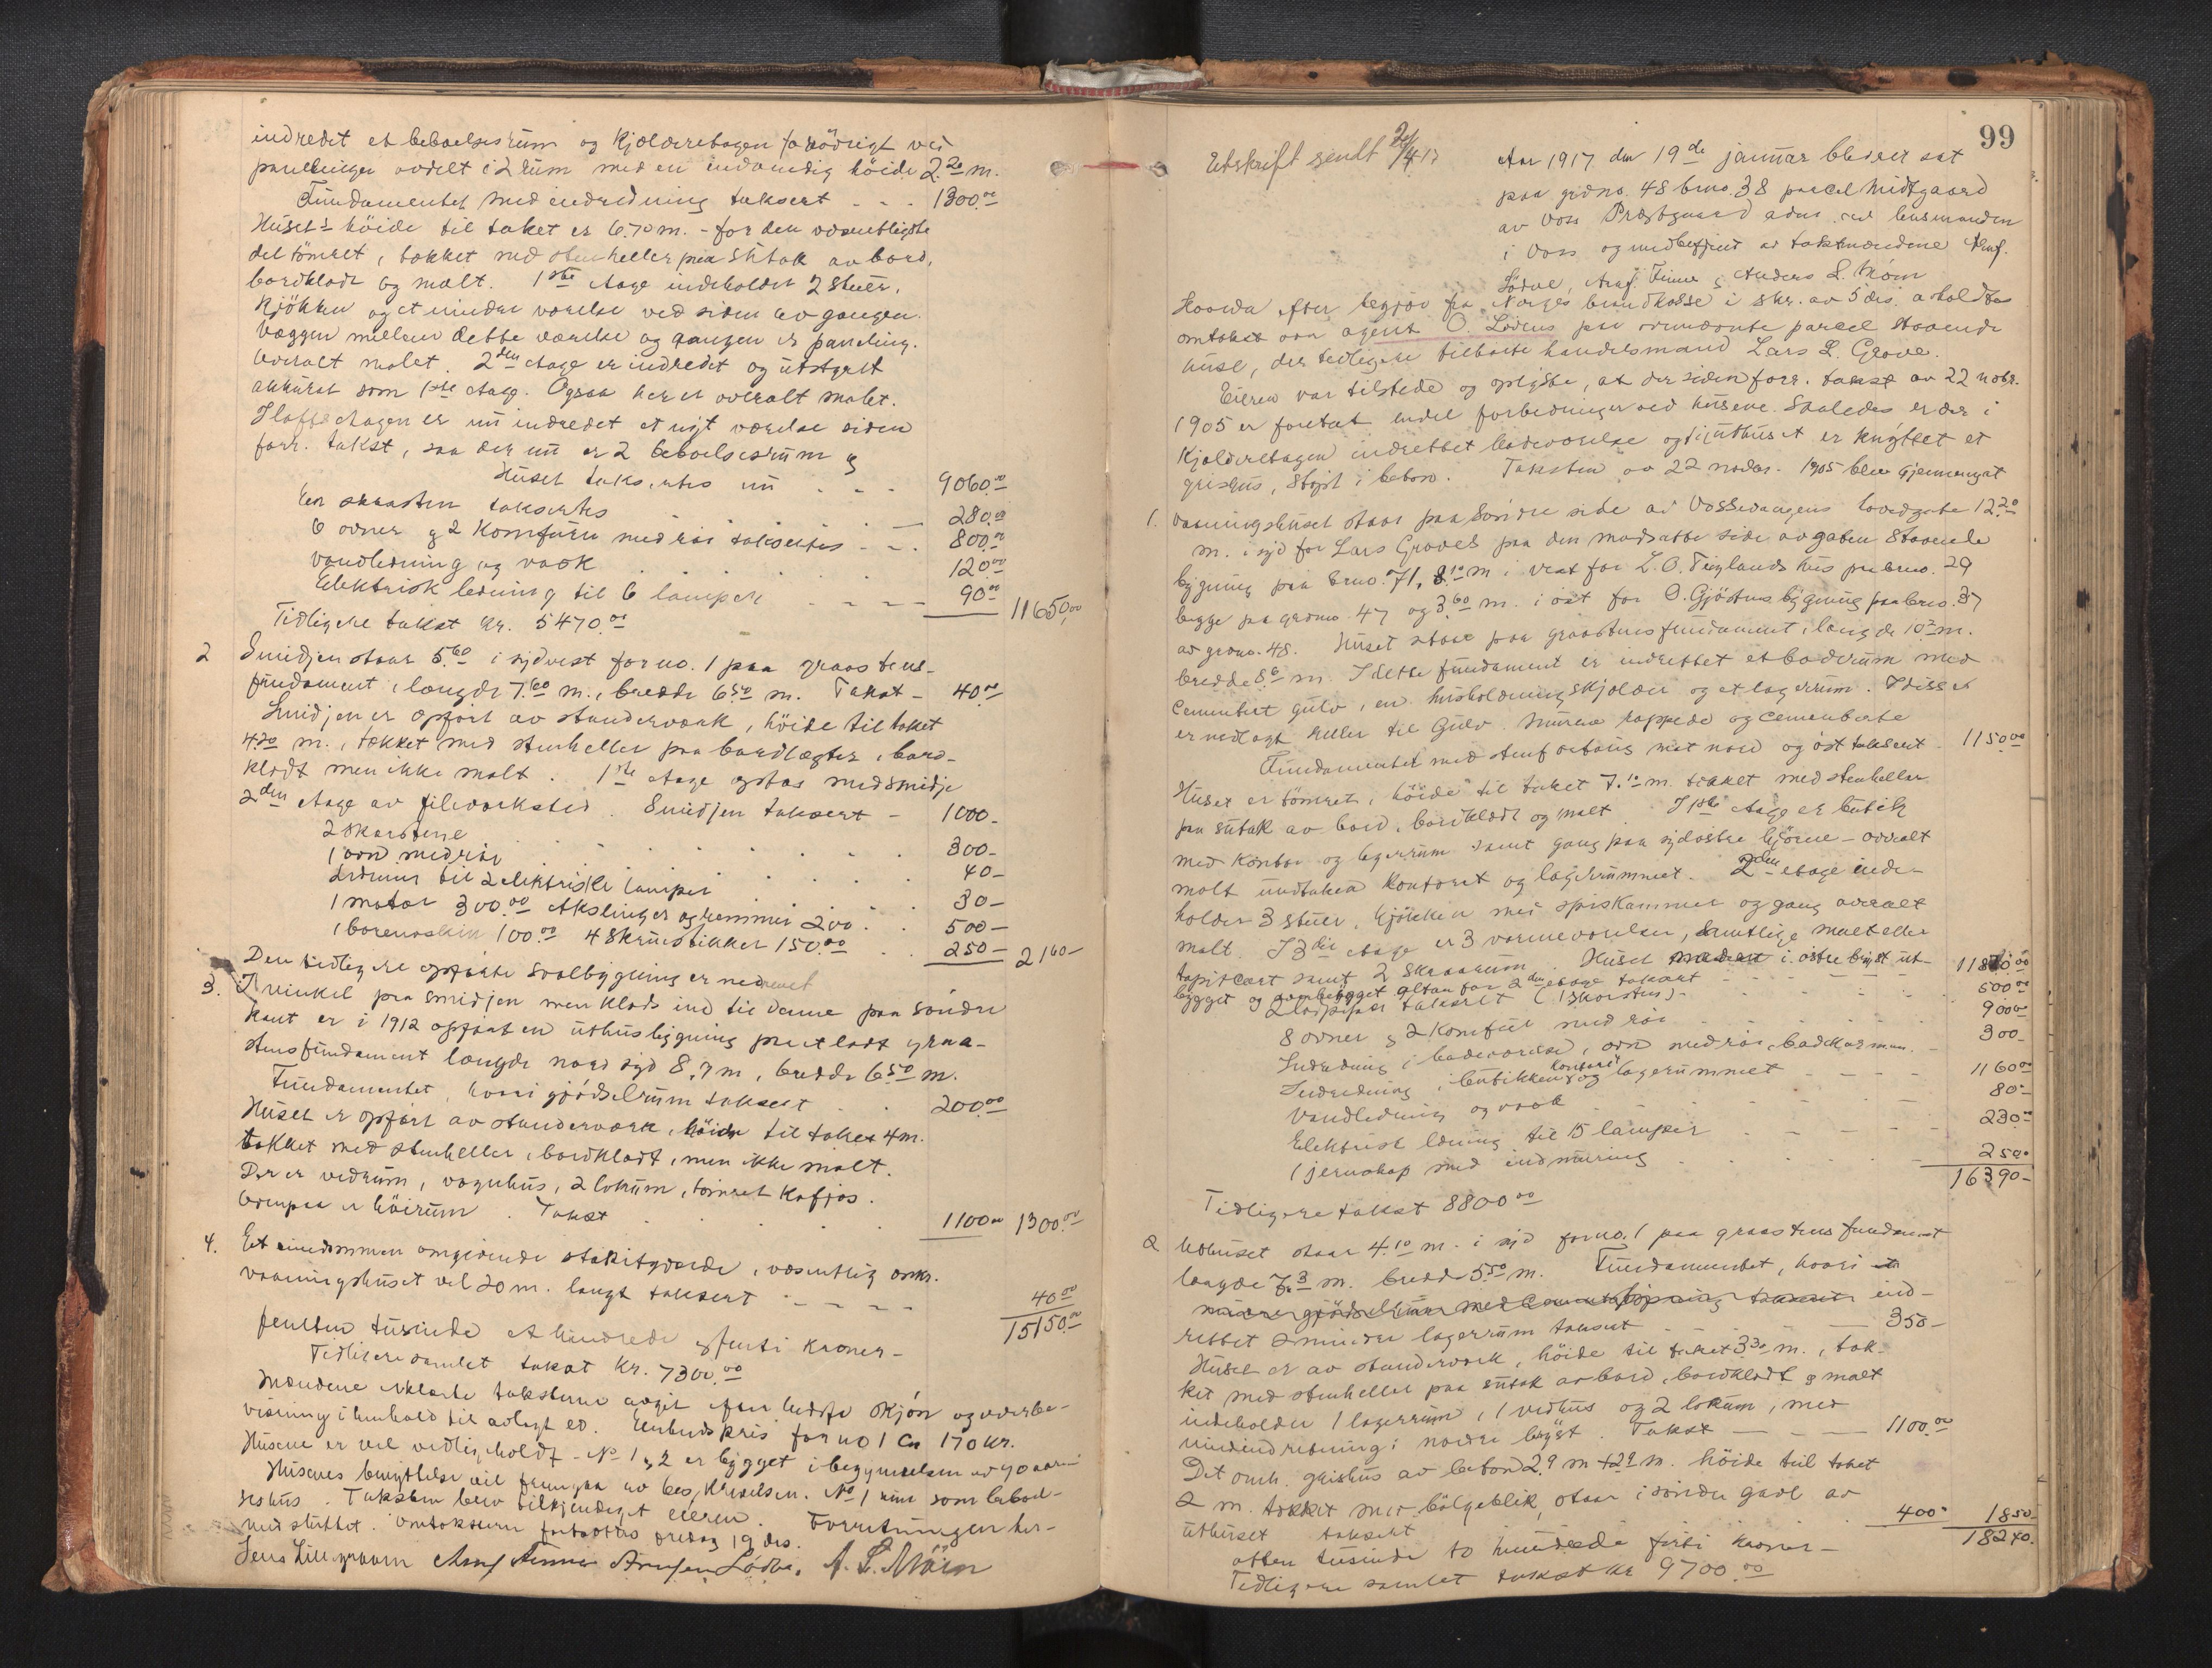 indredet et beboelsesrum og Kjælderetagen forövrigt ved
panelinger avdelt i 2 rum med en indvendig höide 2.20 m.
Fundamentet med indredning taksert - - - 1300.00
Huset's höide til taket er 6.70 m. - for den væsentligste
del tömret, tækket med stenheller paa sutak av bord,
bordklædt og malt. 1ste Etage indeholder 2 stuer,
Kjökken og et mindre værelse ved siden av gangen.
Væggen mellem dette værelse og gangen er paneling.
Overalt malet. 2den Etage er indredet og utstyrt
akkurat som 1ste Etage. Ogsaa her er overalt malet.
I loftsetagen er nu indredet et nyt værelse siden
forr. takst, saa der nu er 2 beboelsesrum og
Huset takseres nu - - - 9060.00
En skorsten takseres - 280.00
6 ovner og 2 Komfurer med rör takseres - - 800.00
Vandledning og vask 120.00
Elektrisk ledning til 6 lamper - - - - 90.00 11650,00
Tidligere takst kr. 5470.00
2 Smidjen staar 5.60 i sydvest for no. 1 paa graastens-
fundament, længde 7.60 m., bredde 6.50 m. Takst - 40.00
Smidjen er opfört av standerverk, höide til taket
4.20 m., tækket med stenheller paa bordlægter, bord-
klædt men ikke malt. 1ste Etage optas med smidje
2den Etage av fileværksted. Smidjen taksert - 1000-
2 skorstene 300-
1 ovn med rör 40-
Ledninger til 2 elektriske lamper 30-
1 motor 300.00 Akslinger og remmer 200 500-
1 boremaskin 100.00 4 Skruestikker 150.00 250- 2160-
Den tidligere opförte svalbygning er nedrevet
3. I vinkel paa smidjen men klods ind til denne paa söndre
kant er i 1912 opfört en uthusbygning paa et lavt graa-
stensfundament længde nord syd 8,7 m, bredde 6.50 m.
Fundamentet, hvori gjödselrum taksert 200.00
Huset er opfört av standerverk, höide til taket 4 m.
tækket med stenheller, bordklædt, men ikke malt.
Der er vedrum, vognhus, 2 lokum, tömret Kufjøs.
Ovenpaa er höirum. Takst 1100.00 1300.00
4. Et eiendommen omgivende stakitgjærde, væsentlig omkr.
vaaningshuset vel 20 m. langt taksert - - - - 40.00
15150.00
femten tusinde et hundrede og femti Kroner -
Tidligere samlet takst Kr. 7300.00
Mændene erklærte taksterne avgit efter bedste skjön og overbe-
visning i henhold til avlagt ed. Enhedspris for no 1 Ca 170 kr.
Husene er vel vedlikeholdt - No 1 og 2 er bygget i begyndelsen av 90 aarene
Husenes benyttelse vil fremgaa av beskrivelsen. No 1 kun som beboel-
seshus. Taksten blev tilkjendegit eieren. Forretningen her-
med sluttet. Omtaksten fortsættes fredag 19 ds.
Jens Lillegraven Arnf Finne Arnfin Lödve. A. L. Mörn
99
Utskrift sendt 2/4 17
Aar 1917 den 19de januar blev ret sat
paa grdno. 48 brno. 38 parcel Midtgaard
av Voss Prestgaard adm. ved lensmanden
i Voss og medbetjent av takstmændene Arnf.
Lödve, Arnf. Finne og Anders L. Mörn
Hvorda efter begjær fra Norges brandkasse i skr. av 5 ds. avholdtes
omtakst over agent O. Lödens paa nævnte parcel staaende
huse, der tidligere tilhörte handelsmand Lars L. Grove.
Eieren var tilstede og oplyste, at der siden forr. takst av 22 novbr.
1905 er foretat endel forbedringer ved husene. Saaledes er der i
Kjælderetagen indrettet badeværelse og til uthuset er knyttet et
grishus, stöpt i beton. Taksten av 22 novbr. 1905 blev gjennemgaat
1. Vaaningshuset staar paa söndre side av Vossevangens hovedgate 12.20
m. i syd for Lars Groves paa den modsatte side av gaten staaende
bygning paa brno. 71, 8.10 m i vest for L. O. Tveglands hus paa brno. 29
begge paa grdno. 47 og 3.60 m. i öst for O. Gjöstus bygning paa brno. 37
av grdno. 48. Huset staar paa graastensfundament, længde 10.2 m.
bredde 8.6 m. I dette fundament er indrettet et baderum med
Cementert gulv, en husholdningskjelder og et lagerrum. I disse
er nedlagt heller til Gulv. Murene rappede og cementerte
Fundamentet med stenfortaug mot nord og öst taksert - 1150.00
Huset er tömret, höide til taket 7.10 m. tækket med stenheller
paa sutak av bord, bordklædt og malt. I 1ste Etage er butik
med Kontor og lagerrum samt gang paa sydöstre hjörne - overalt
malt undtaken kontoret og lagerrummet. 2den etage inde-
holder 3 stuer, kjökken med spiskammer og gang overalt
malt. I 3die etage er 3 varmeværelser, samtlige malt eller
tapitsert samt 2 skraarum. Huset i östre bryst ut- 11820.00
bygget og ombygget altan for 2den etage taksert 500.00
2 ladpiper taksert (1 skorsten) - 900.00
8 ovner og 2 komfur med rör 300-
Indredning i badeværelse, ovn med rör, badekar m.m.
Indredning i butikken, kontor og lagerrummet - - - - 1160.00
Vandledning og vask 80-
Elektrisk ledning til 15 lamper - - - - 230-
1 jernskap med indmuring 250-
16390-
Tidligere takst 8800.00
2 Uthuset staar 4.10 m. i syd for no. 1 paa graastensfundament
længde 7.3 m. bredde 5.50 m. Fundamentet, hvori
ind-
rettet 2 mindre lagerrum taksert - - 350-
Huset er av standerverk, höide til taket 3.30 m., tæk-
ket med stenheller paa sutak av bord, bordklædt og malt
indeholder 1 lagerrum, 1 vedhus og 2 lokum, med
mindre indretning i nordre bryst. Takst - - - 1100.00
Det omh. grishus av beton 2.9 m + 2.9 m. höide til taket
2 m. tækket med bölgeblik, staar i söndre gavl av
uthuset taksert 400- 1850-
18240.
atten tusinde to hundrede firti kroner -
Tidligere samlet takst kr 9700.00